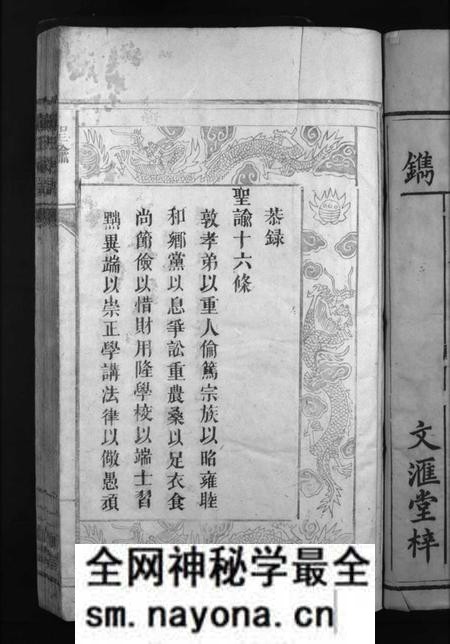 鐫
文滙堂梓
恭録
聖諭十六條
敦孝弟以重人倫篤宗族以昭雍睦
和鄉黨以息爭訟重農桑以足衣食
尚節儉以惜財用隆學校以端士習
黜異端以崇正學講法律以儆愚頑
聖諭
全网神秘学最全
sm.nayona.cn